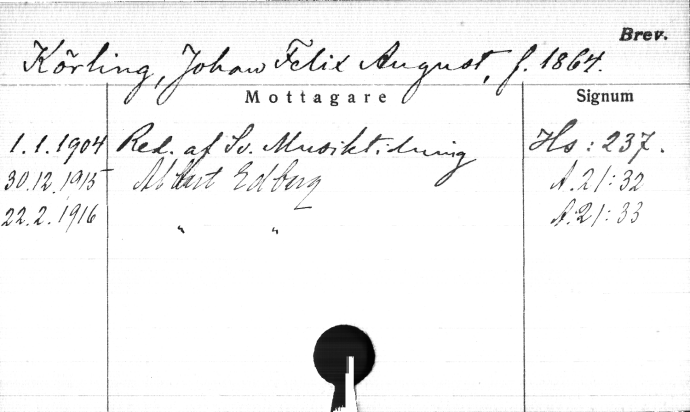 Brev.
Körling, Johan Felix August, f. 1864.
Mottagare Signum
1.1.1904 Red. af Sv. Musiktidning Hs: 237.
30.12.1915 Albert Edberg A.21:32
22.2.1916 " " A:21:33